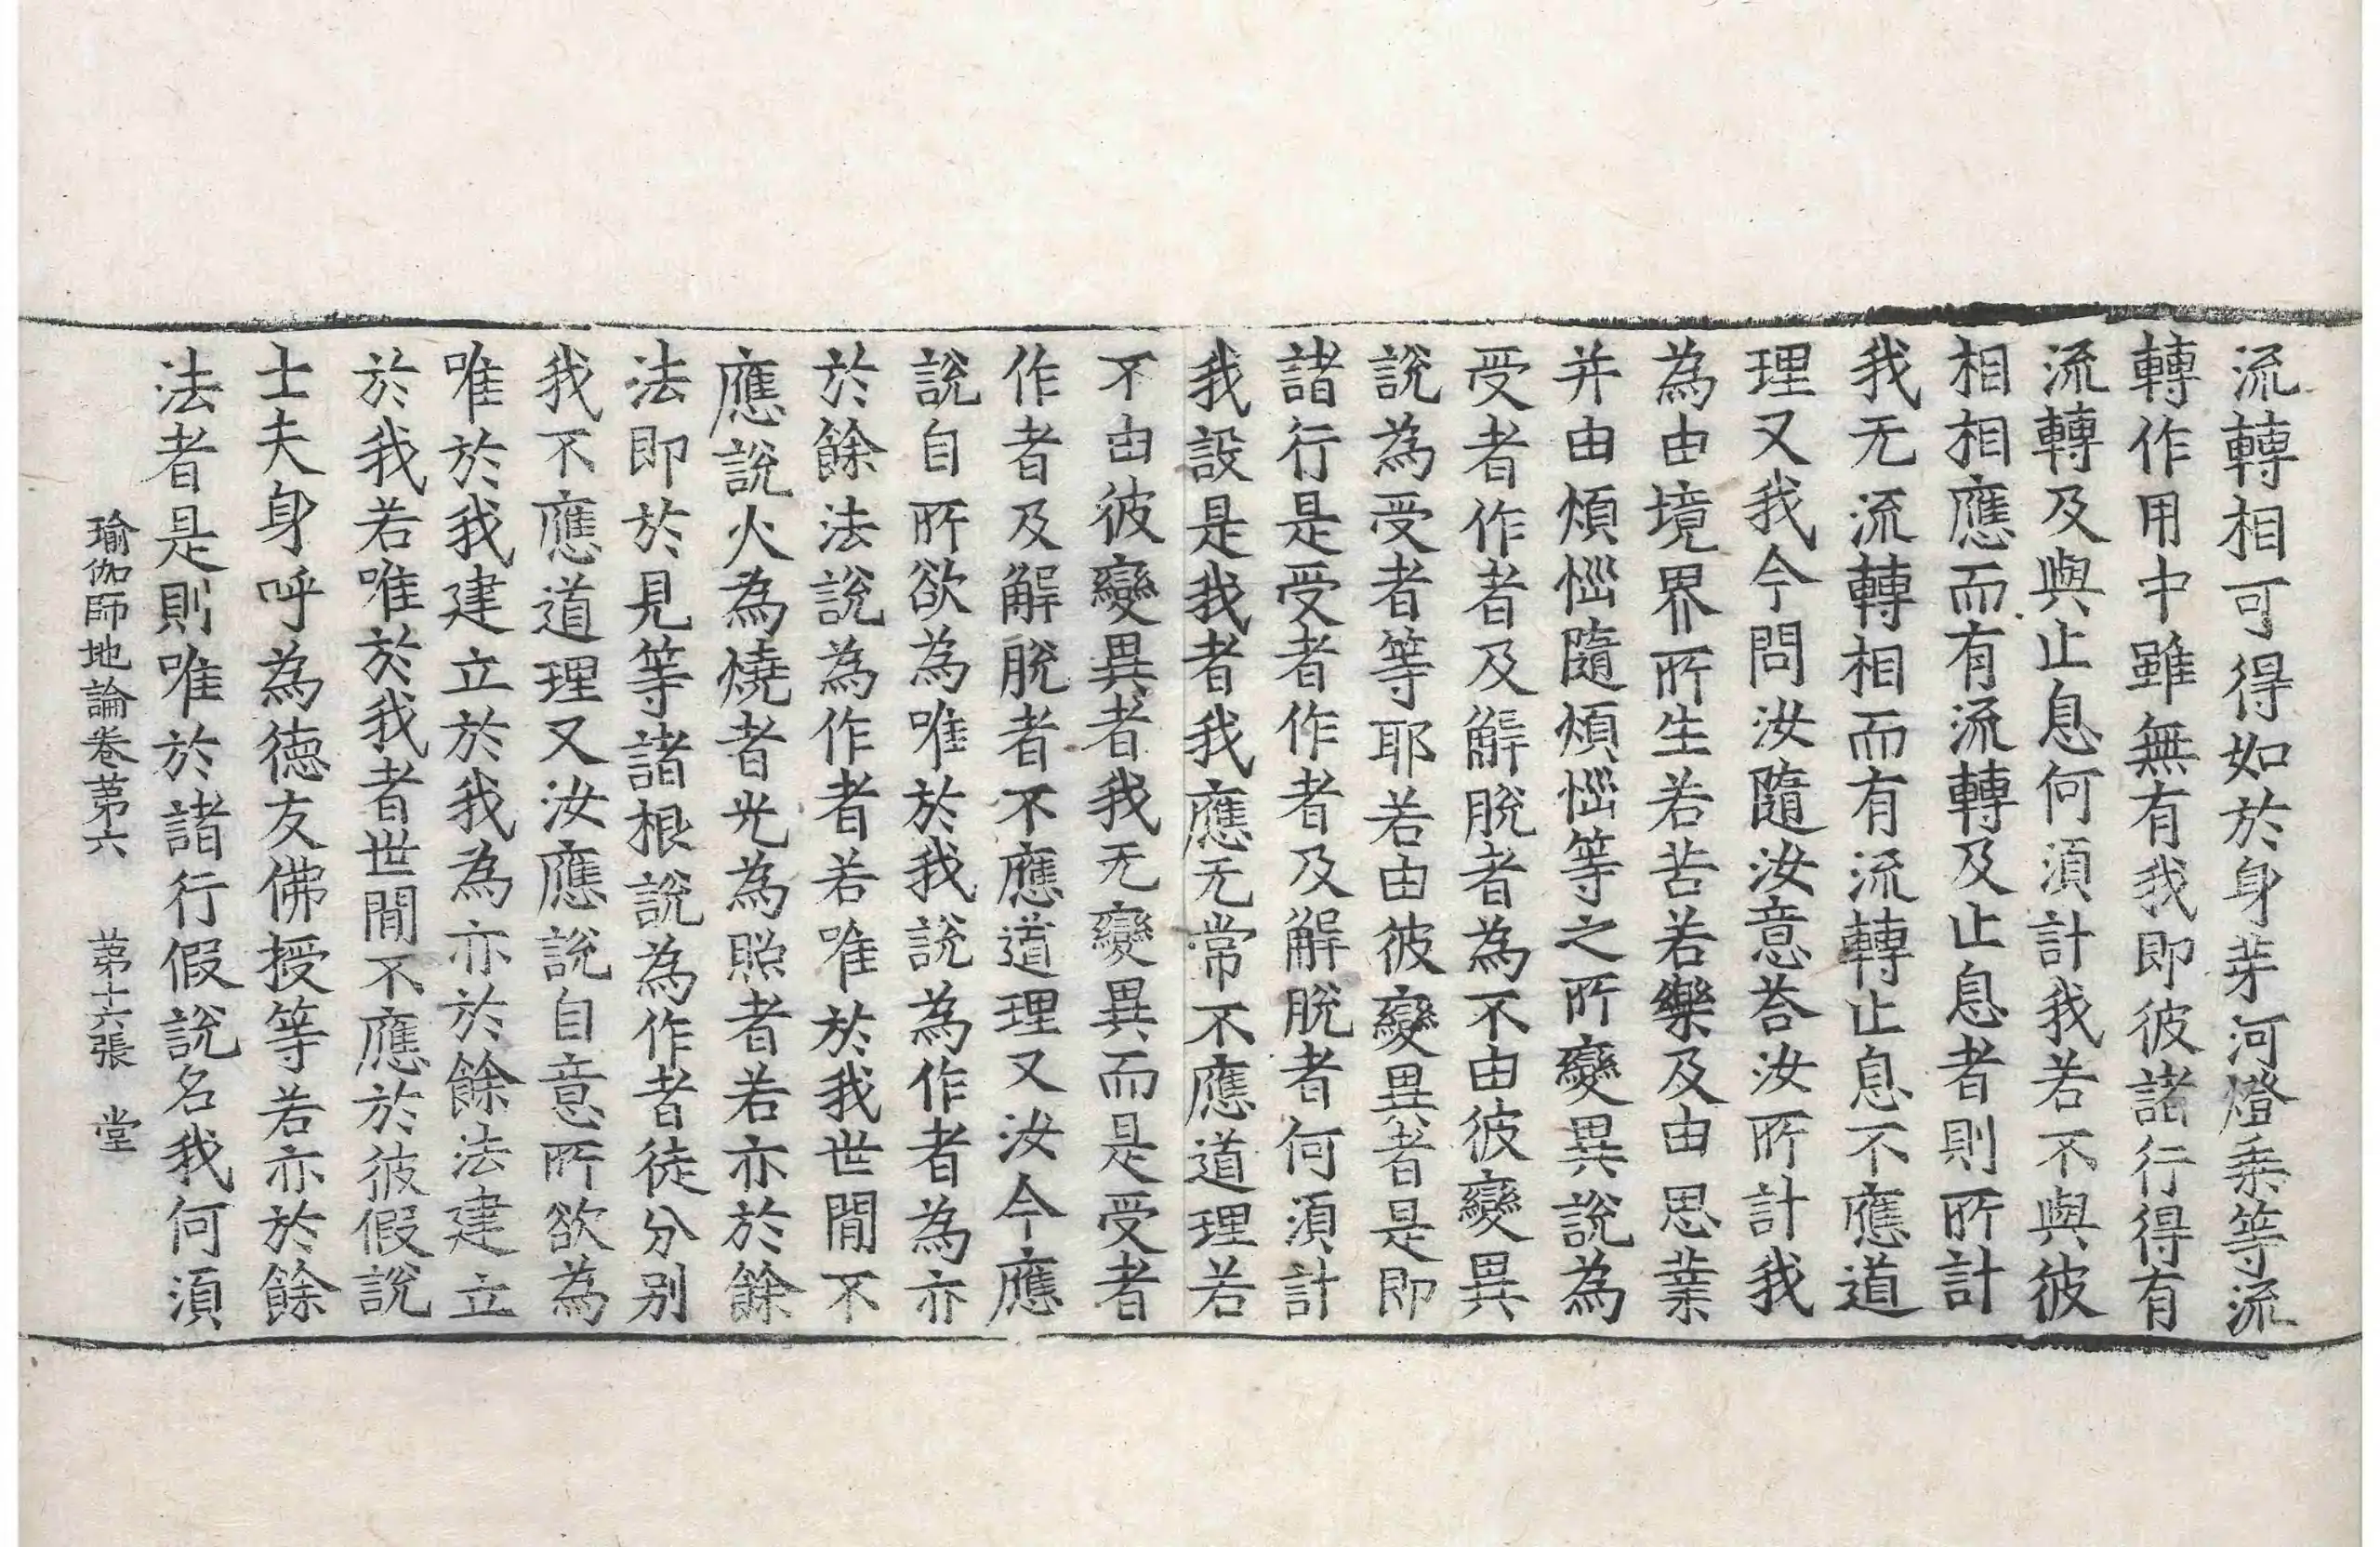 流轉相可得如於身芽河燈乘等流
轉作用中雖無有我即彼諸行得有
流轉及與止息何須計我若不與彼
相相應而有流轉及止息者則所計
我无流轉相而有流轉止息不應道
理又我今問汝隨汝意荅汝所計我
為由境界所生若苦若樂及由思業
并由煩惱隨煩惱等之所變異說為
受者作者及解脫者為不由彼變異
說為受者等耶若由彼變異者是即
諸行是受者作者及解脫者何須計
我設是我者我應无常不應道理若
不由彼變異者我无變異而是受者
作者及解脫者不應道理又汝今應
說自所欲為唯於我說為作者為亦
於餘法說為作者若唯於我世間不
應說火為燒者光為照者若亦於餘
法即於見等諸根說為作者徒分别
我不應道理又汝應說自意所欲為
唯於我建立於我為亦於餘法建立
於我若唯於我者世間不應於彼假說
士夫身呼為德友佛授等若亦於餘
法者是則唯於諸行假說名我何須
瑜伽師地論卷苐六　苐十六張　堂